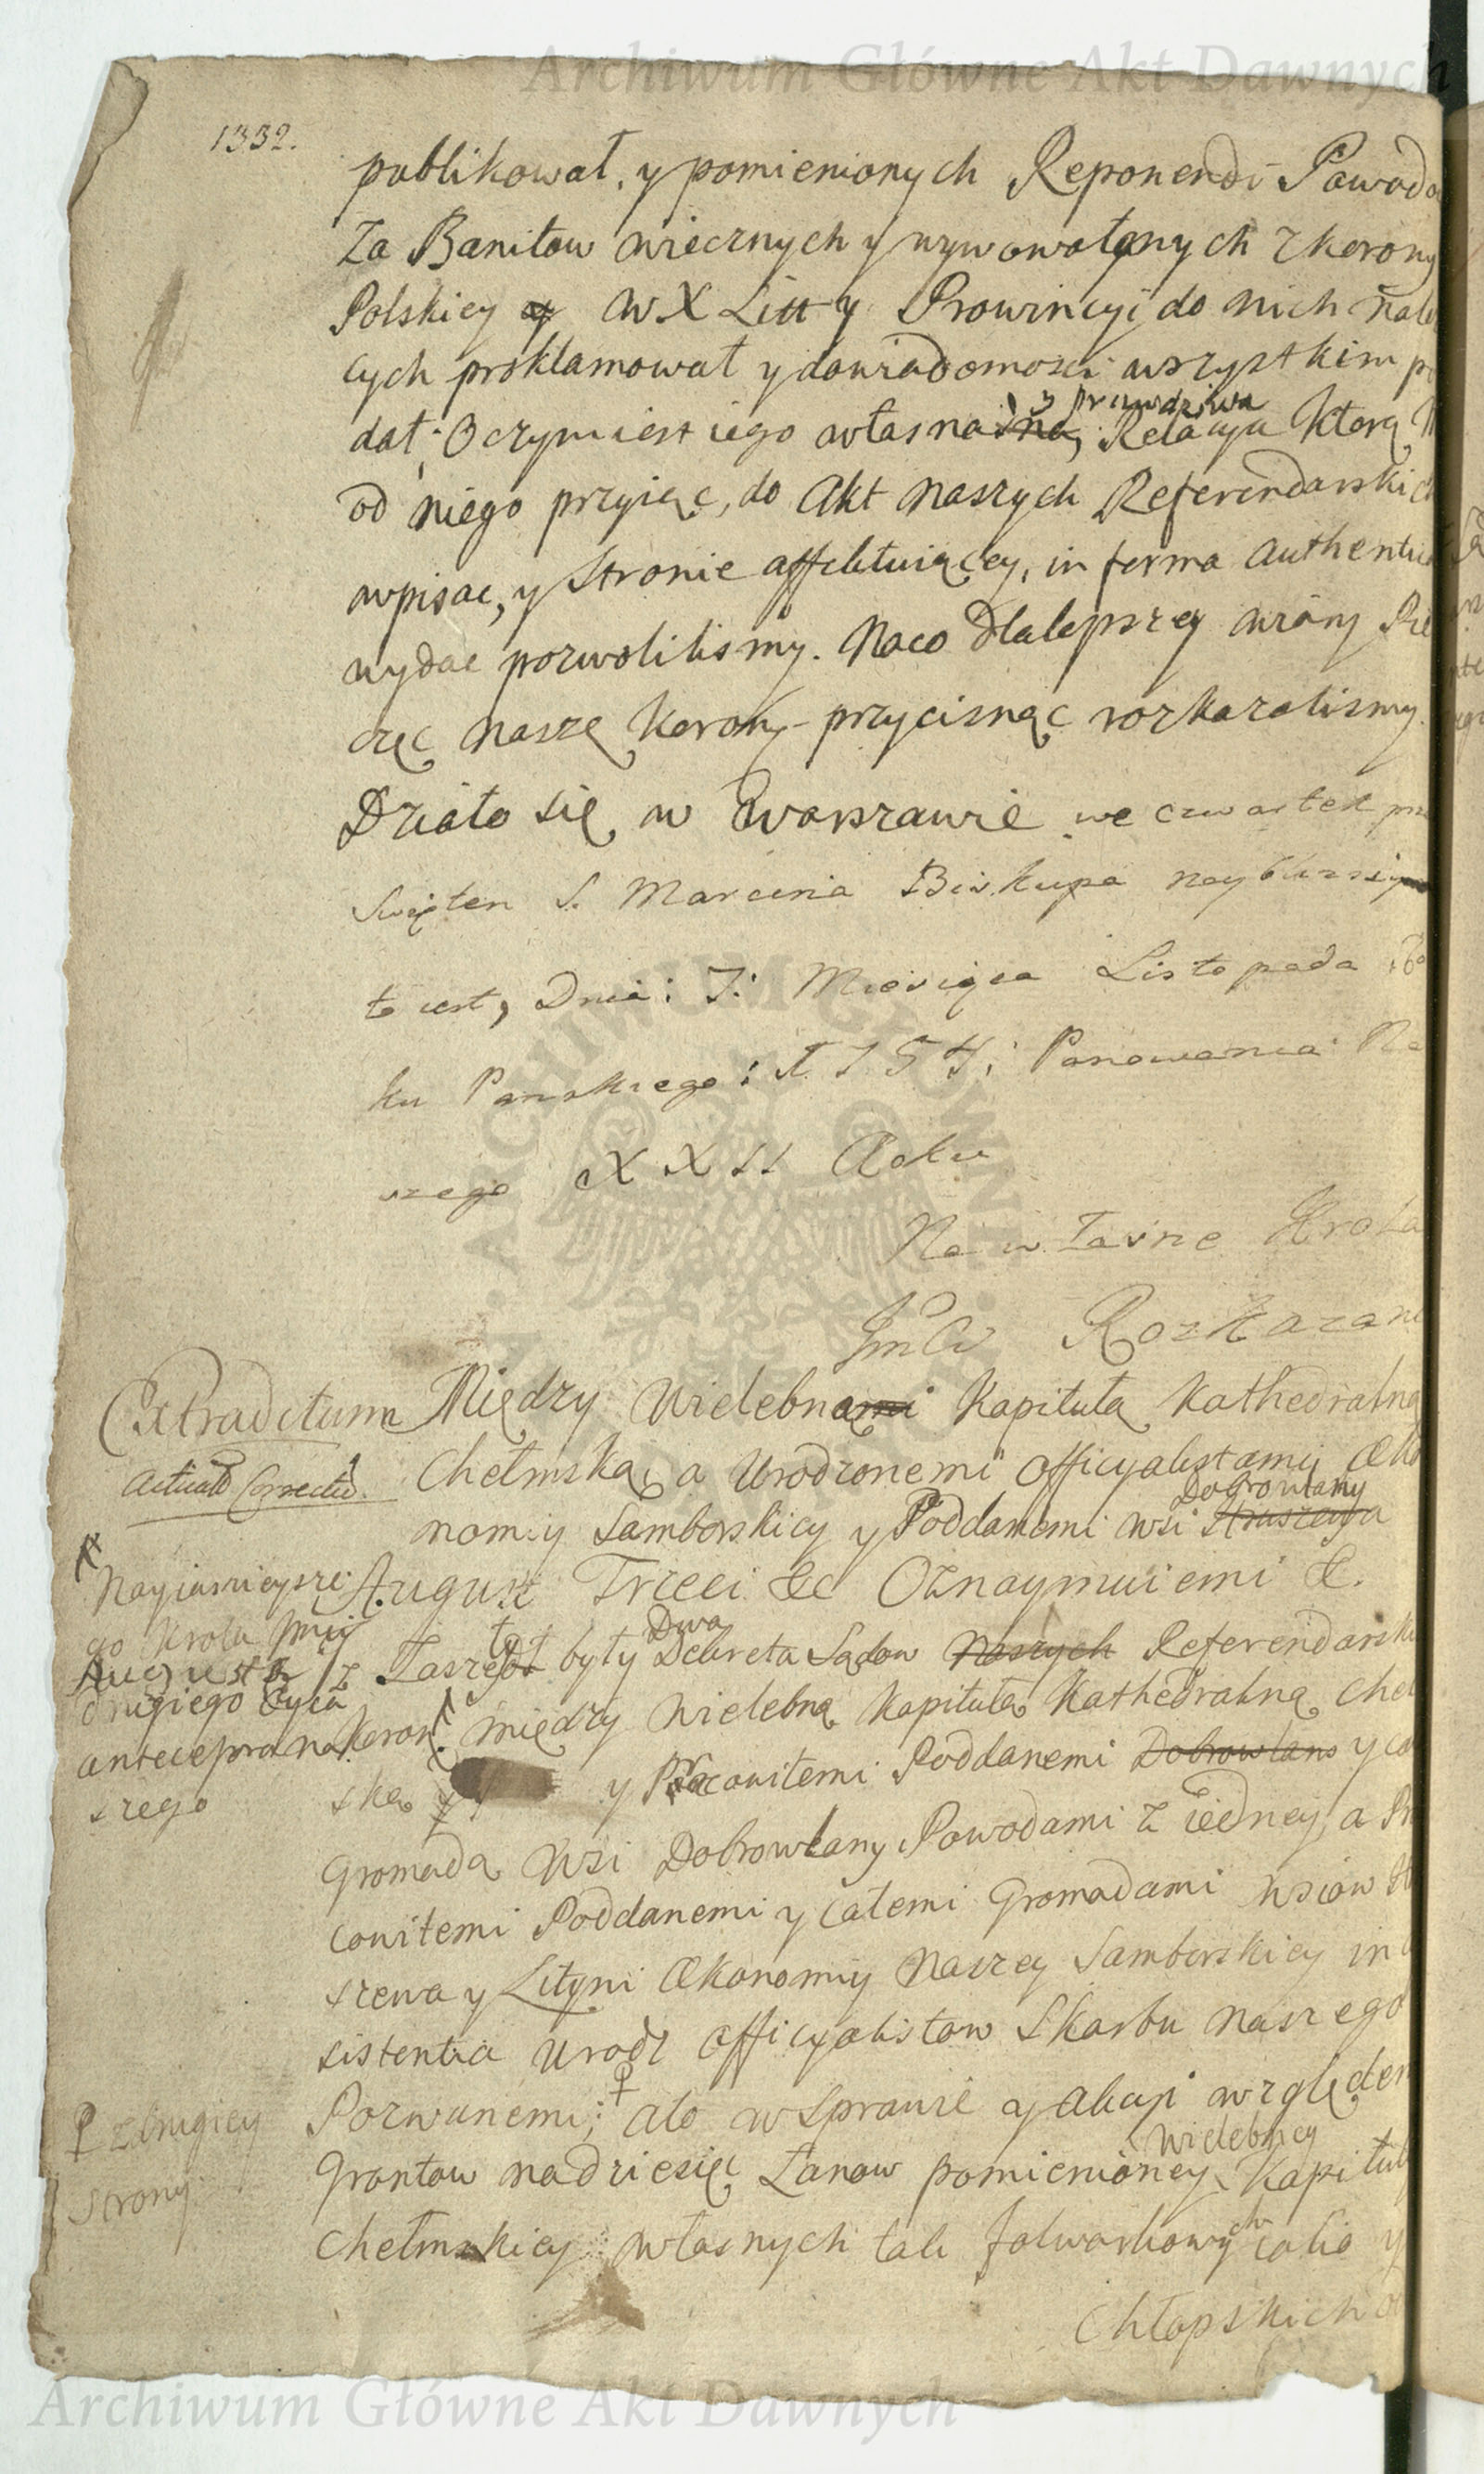 Archiwum Główne Akt Dawnych
1332.
publikował, y pomienionych Reponendi Powodo
Za Banitow wiecznych y wywowołanych z korony
Polskiey y W X Litt y Prowincyi do nich nale
cych proklamował y dowiadomosci wszystkim po
dał; Oczym iest iego własna y prawdziwa Relacya Ktorą
od niego przyiąc, do Akt Naszych Referendarskich
wpisac, y Stronie affektuiącey, in forma authentica
wydac pozwolilismy. Naco dla lepszey wiary Pie
częc Naszę Koron: przycisnąc rozkazalismy.
Działo się w Warszawie we czwartek prze
Swiętem S. Marcina Biskupa naybliższym
to iest, Dnia: 7: Miesiąca Listopada Ro
ku Panskiego: 1754: Panowania Na
szego XXII Roku
Na własne Krola
Jmci Rozkazanie
Extraditum
Actuatū Correctū.
Między Wielebną Kapitułą Kathedralną
Chełmską, a Urodzonemi Officyalistami Œko
nomiy Samborskiey y Poddanemi wsi Straszewa
Dobrowlany
August Trzeci &c Oznaymuiemi &.
Nayiasnieysze
go Krola Jmci
Augusta
drugiego Oyca
antecessora na
szego
Zaszłe były Dwa Dekreta Sądow Naszych Referendarski
Koron. między Wielebną Kapitułą Kathedralną Cheł
ską y Pracowitemi Poddanemi Dobrowlans y ca
Gromadą Wsi Dobrowlany Powodami z iedney, a Pr
cowitemi Poddanemi y całemi Gromadami wsiow St
szewa y Lityni Œkonomiy Naszey Samborskiey in
sistentia Urodz Officyalistow Skarbu Naszego
Pozwanemi; ato w sprawie y akcyi względem
z drugiey
strony
Grontow nadziesięc Łanow pomienioney Wielebney Kapituły
Chełmskiey własnych tak folwarkowych iako y
Chłopskich
Archiwum Główne Akt Dawnych